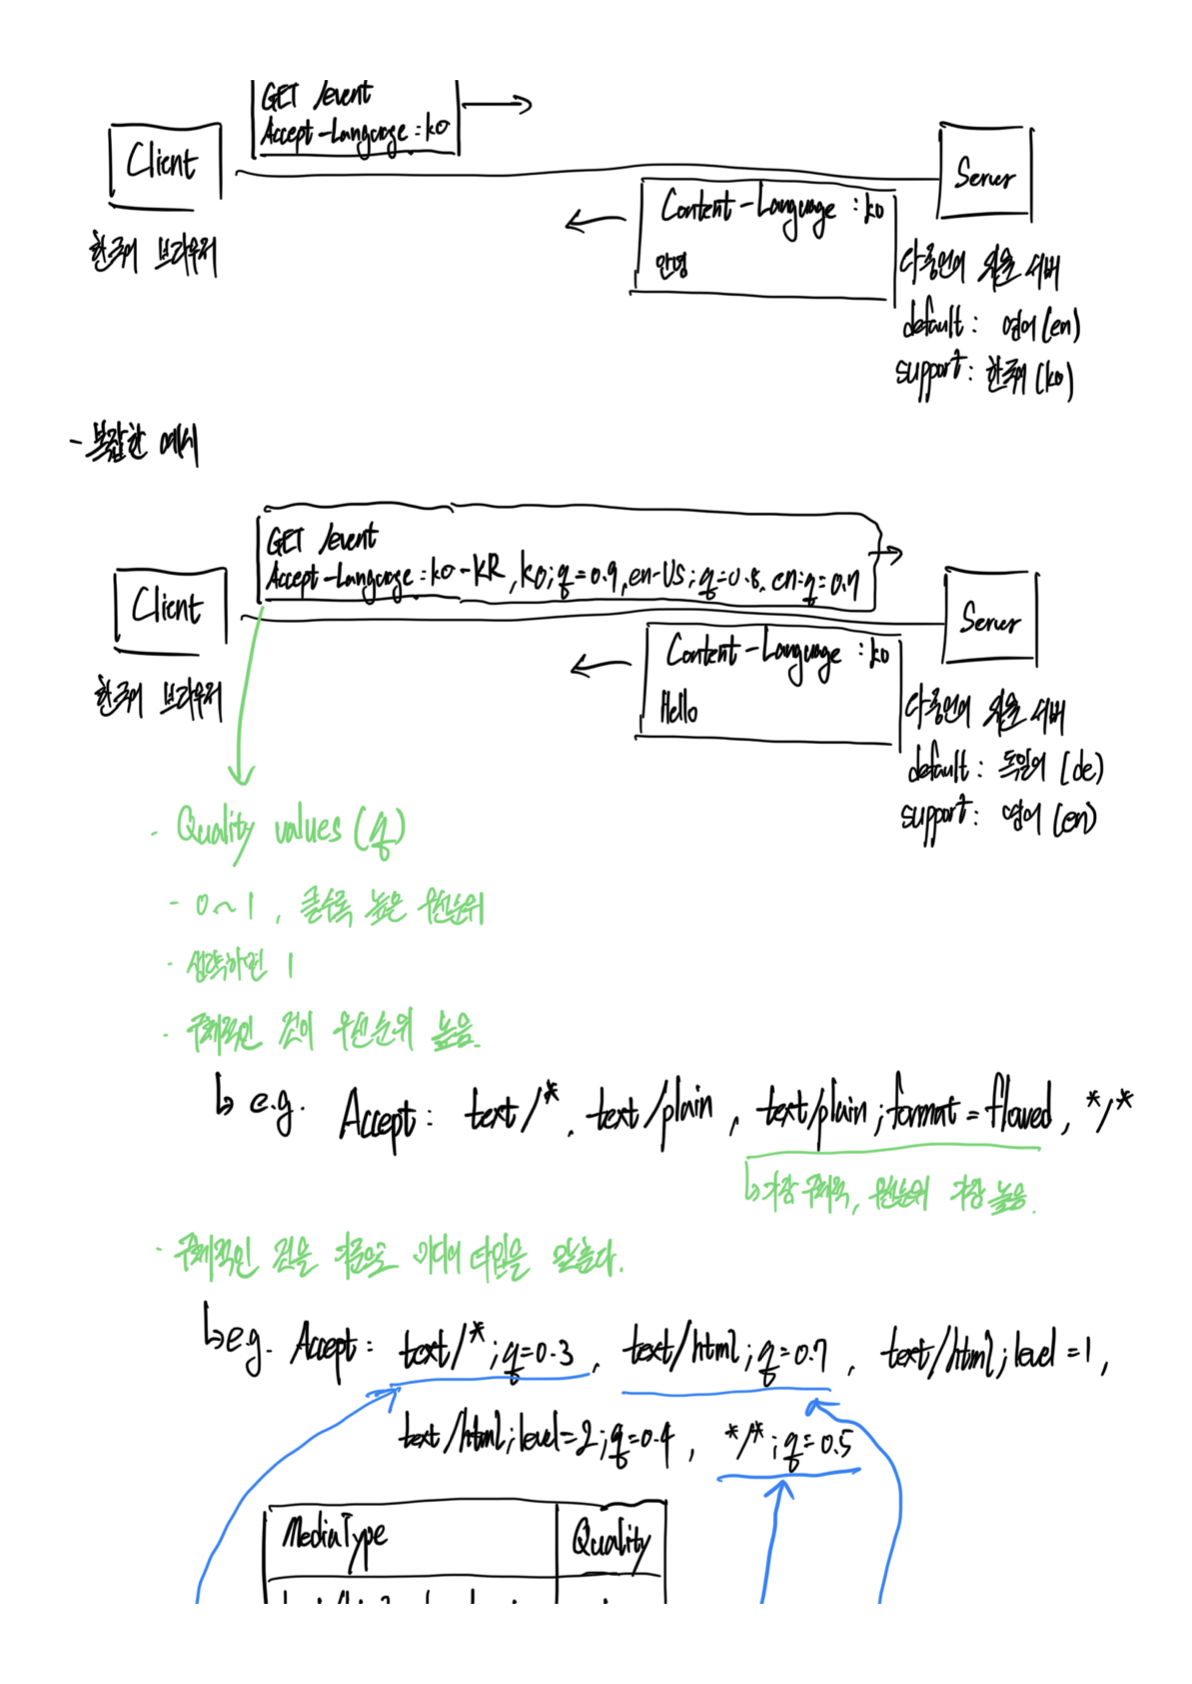 GET /event
Accept-Language : ko
Client
Server
Content-Language : ko
안녕
한국어 브라우저
다중언어 지원 서버
default : 영어 (en)
support : 한국어 (ko)
- 복잡한 예시
GET /event
Accept-Language : ko-KR, ko;q=0.9, en-US;q=0.8, en:q=0.7
Client
Server
Content-Language : ko
Hello
한국어 브라우저
다중언어 지원 서버
default : 독일어 (de)
support : 영어 (en)
· Quality values (q)
- 0~1, 클수록 높은 우선순위
· 생략하면 1
· 구체적인 것이 우선순위 높음.
↳ e.g. Accept: text/*, text/plain, text/plain;format=flowed, */*
↳ 가장 구체적, 우선순위 가장 높음.
· 구체적인 것을 기준으로 미디어 타입을 맞춘다.
↳ e.g. Accept: text/*;q=0.3, text/html;q=0.7, text/html;level=1,
text/html;level=2;q=0.4, */*;q=0.5
MediaType Quality